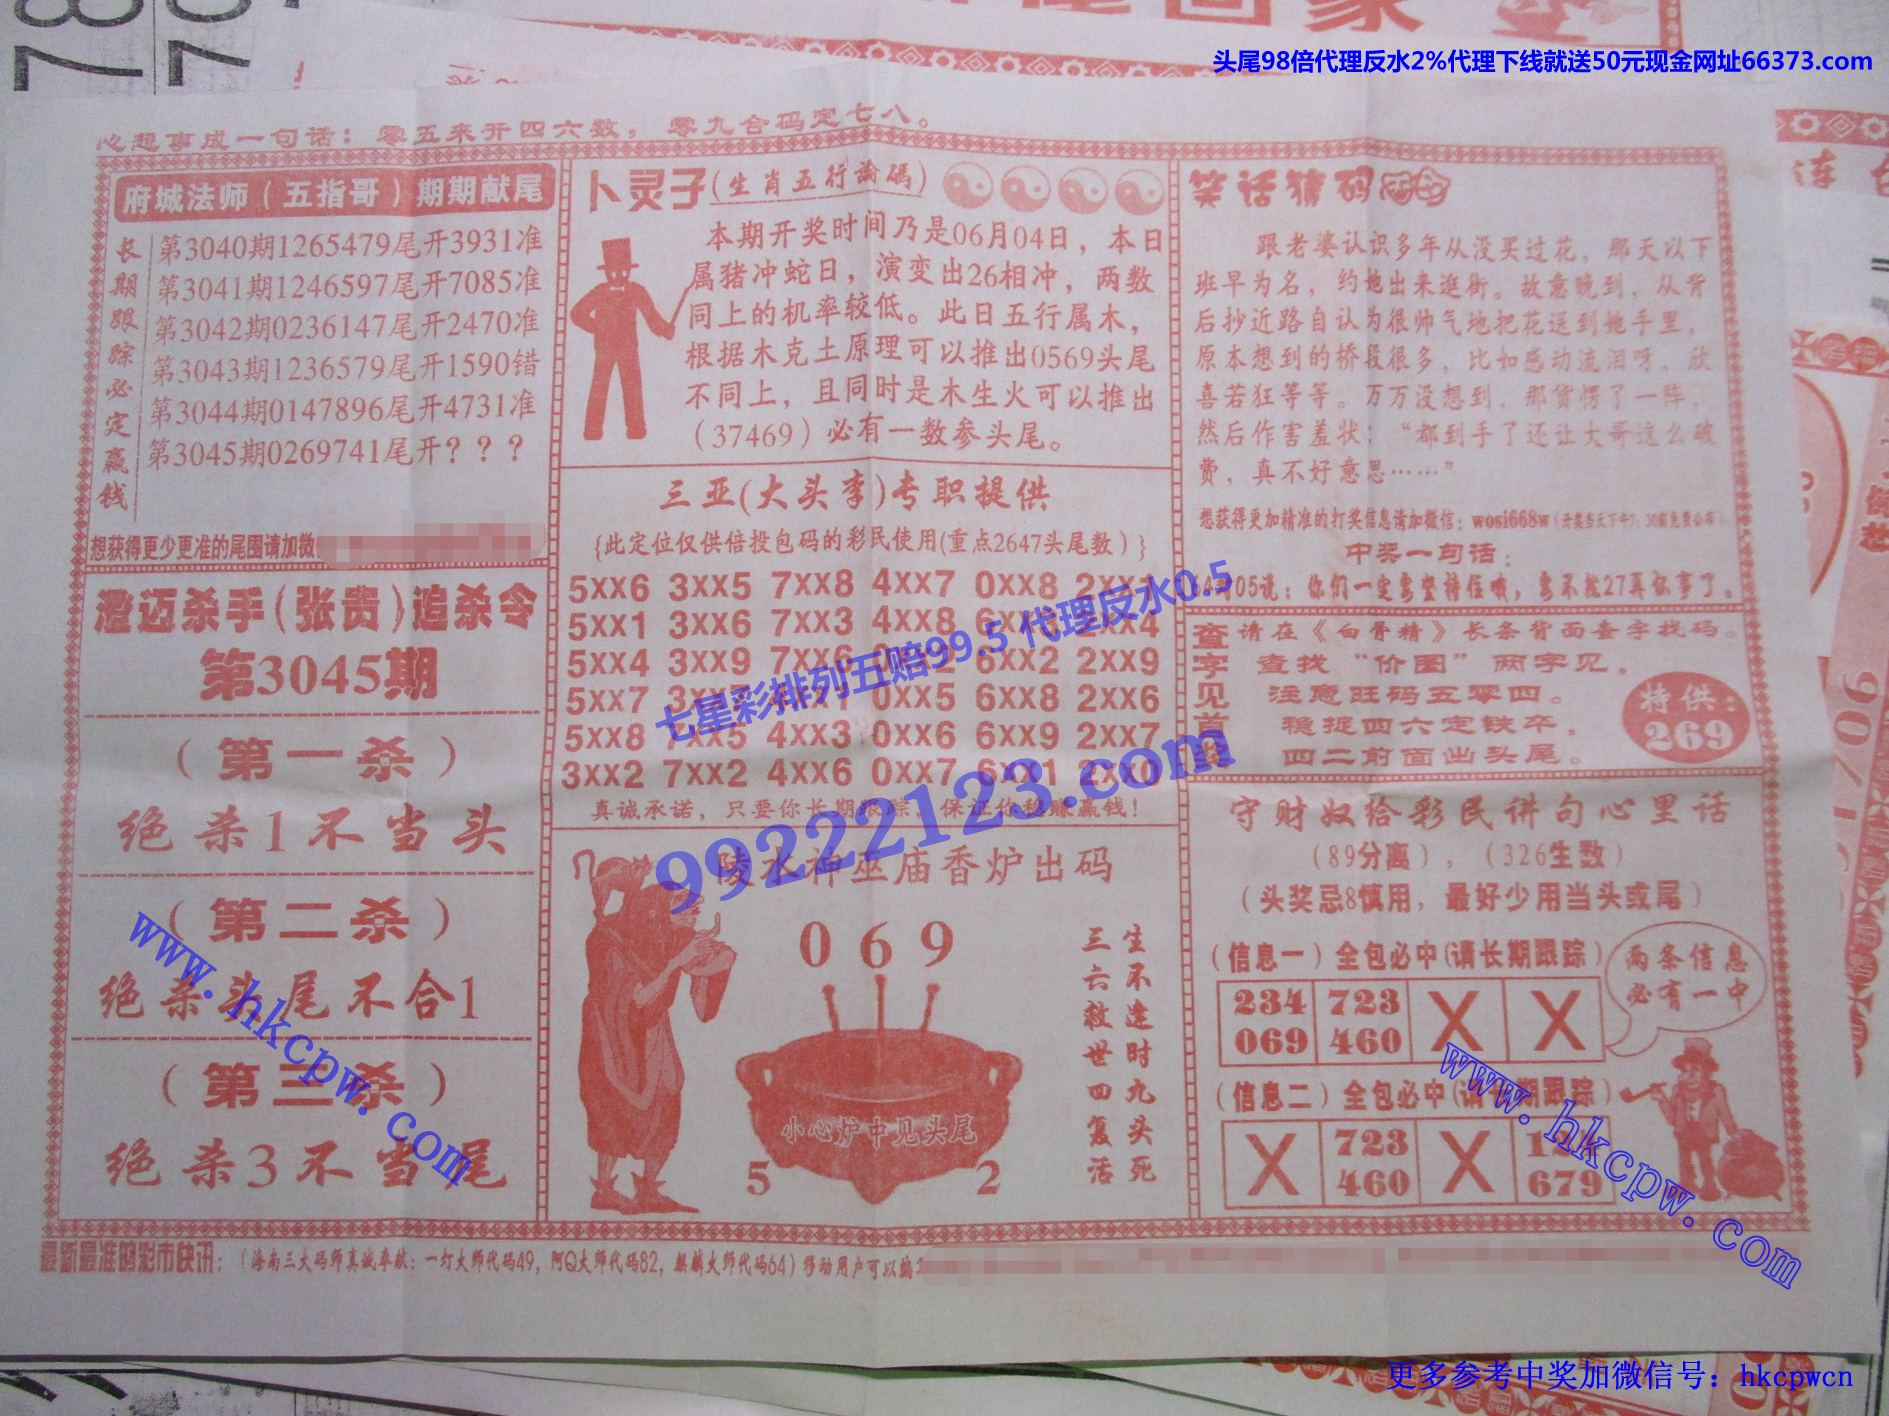 头尾98倍代理反水2%代理下线就送50元现金网址66373.com
心想事成一句话：零五来开四六数，零九合码定七八。
府城法师（五指哥）期期献尾
长期跟踪必定赢钱
第3040期1265479尾开3931准
第3041期1246597尾开7085准
第3042期0236147尾开2470准
第3043期1236579尾开1590错
第3044期0147896尾开4731准
第3045期0269741尾开？？？
想获得更少更准的尾围请加微
澄迈杀手(张贵)追杀令
第3045期
（第一杀）
绝杀1不当头
（第二杀）
绝杀头尾不合1
（第三杀）
绝杀3不当尾
卜灵子(生肖五行論碼)
本期开奖时间乃是06月04日，本日
属猪冲蛇日，演变出26相冲，两数
同上的机率较低。此日五行属木，
根据木克土原理可以推出0569头尾
不同上，且同时是木生火可以推出
（37469）必有一数参头尾。
三亚(大头李)专职提供
{此定位仅供倍投包码的彩民使用(重点2647头尾数）}
5XX6 3XX5 7XX8 4XX7 0XX8 2XX1
5XX1 3XX6 7XX3 4XX8 6XX 2XX4
5XX4 3XX9 7XX6 6XX2 2XX9
5XX7 3XX 0XX5 6XX8 2XX6
5XX8 7XX5 4XX3 0XX6 6XX9 2XX7
3XX2 7XX2 4XX6 0XX7 6XX1 2XX0
真诚承诺，只要你长期跟踪，保证你稳赚赢钱！
七星彩排列五赔99.5 代理反水0.5
99222123.com
陵水神巫庙香炉出码
0 6 9
小心炉中见头尾
5 2
生不逢时九头死
三六救世四复活
笑话猜码
跟老婆认识多年从没买过花，那天以下
班早为名，约她出来逛街。故意晚到，从背
后抄近路自认为很帅气地把花送到她手里，
原本想到的桥段很多，比如感动流泪呀，欣
喜若狂等等。万万没想到，那货愣了一阵，
然后作害羞状：“都到手了还让大哥这么破
费，真不好意思……”
想获得更加精准的打奖信息请加微信：wosi668w(开奖当天下午7：30前免费公布)
中奖一句话：
05说：你们一定要坚持住哦，要不然27再你事了。
查字见首奖
请在《白骨精》长条背面查字找码。
查找“价图”两字见，
注意旺码五零四。
稳捉四六定铁卒，
四二前面出头尾。
特供：
269
守财奴给彩民讲句心里话
（89分离），（326生数）
（头奖忌8慎用，最好少用当头或尾）
（信息一）全包必中(请长期跟踪）
234 723 X X
069 460
两条信息
必有一中
（信息二）全包必中(请长期跟踪）
X 723 X
460 679
www.hkcpw.com
www.hkcpw.com
最新最准的彩市快讯：（海南三大码师真诚奉献：一灯大师代码49，阿Q大师代码82，麒麟大师代码64）移动用户可以编
更多参考中奖加微信号：hkcpwcn